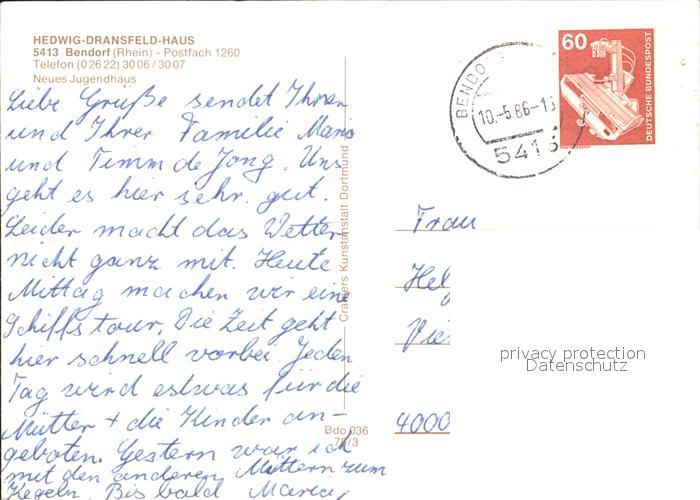 HEDWIG-DRANSFELD-HAUS
5413 Bendorf (Rhein) - Postfach 1260
Telefon (0 26 22) 30 06 / 30 07
Neues Jugendhaus
Liebe Grüße sendet Ihnen
und Ihrer Familie Maria
und Timm de Jong. Uns
geht es hier sehr gut.
Leider macht das Wetter
nicht ganz mit. Heute
Mittag machen wir eine
Schiffstour. Die Zeit geht
hier schnell vorbei. Jeden
Tag wird estwas für die
Mütter + die Kinder an-
geboten. Gestern war ich
mit den anderen Müttern zum
Kegeln. Bis bald Maria,
Cramers Kunstanstalt Dortmund
Bdo 036
78/3
BENDO
10.-5.86-13
5413
60
DEUTSCHE BUNDESPOST
Frau
Hel
Vie
4000
privacy protection
Datenschutz